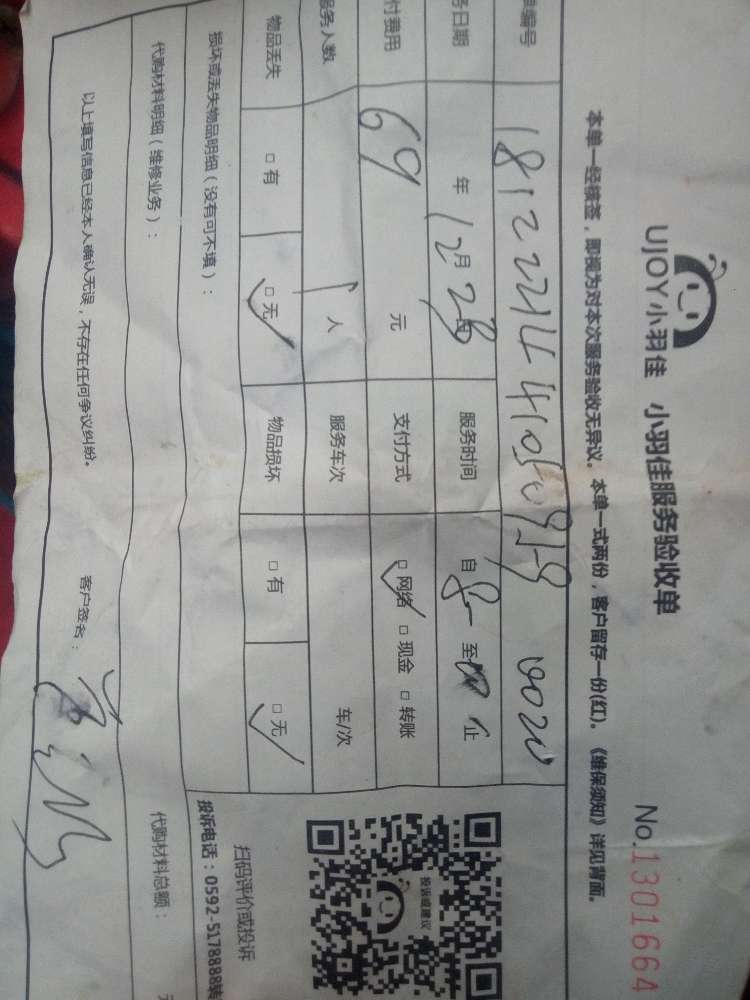 UJOY小羽佳 小羽佳服务验收单
No.1301664
本单一经核签，即视为对本次服务验收无异议。本单一式两份，客户留存一份(红)。《维保须知》详见背面。
单编号 1812221441050959
务日期 年 12月23日 服务时间 自8至 止
付费用 69 元 支付方式 □网络 □现金 □转账
服务人数 1 人 服务车次 车/次
物品丢失 □有 □无 物品损坏 □有 □无
损坏或丢失物品明细（没有可不填）：
代购材料明细（维修业务）： 代购材料总额： 元
以上填写信息已经本人确认无误，不存在任何争议纠纷。 客户签名：
投诉或建议
扫码评价或投诉
投诉电话：0592-5178888转